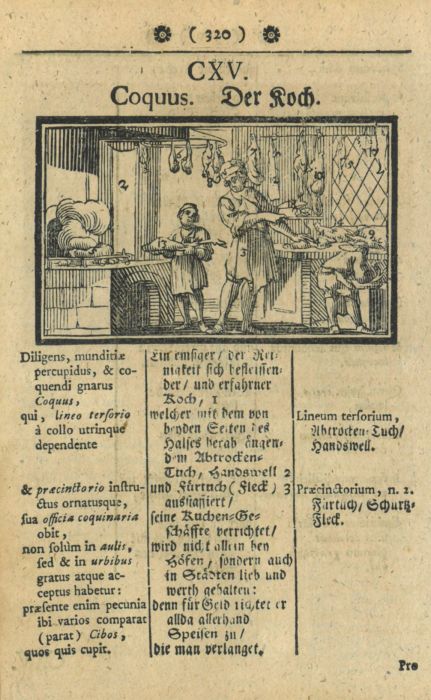 ( 320 )
CXV.
Coquus. Der Koch.
Diligens, munditiæ
percupidus, & co-
quendi gnarus
Coquus,
qui, lineo tersorio
à collo utrinque
dependente
& præcinctorio instru-
ctus ornatusque,
sua officia coquinaria
obit,
non solùm in aulis,
sed & in urbibus
gratus atque ac-
ceptus habetur:
præsente enim pecunia
ibi varios comparat
(parat) Cibos,
quos quis cupit.
Ein emsiger / der Rei-
nigkeit sich befleissen-
der / und erfahrner
Koch, 1
welcher mit dem von
beyden Seiten des
Halses herab hängen-
dem Abtrocken-
Tuch, Handswell 2
und Fürtuch (Fleck) 3
ausstaffiert /
seine Kuchen-Ge-
schäffte verrichtet /
wird nicht allein bey
Höfen, sondern auch
in Städten lieb und
werth gehalten:
denn für Geld richtet er
allda allerhand
Speisen zu /
die man verlanget.
Lineum tersorium,
Abtrocken-Tuch /
Handswell.
Præcinctorium, n. 2.
Fürtuch / Schurtz-
Fleck.
Pro